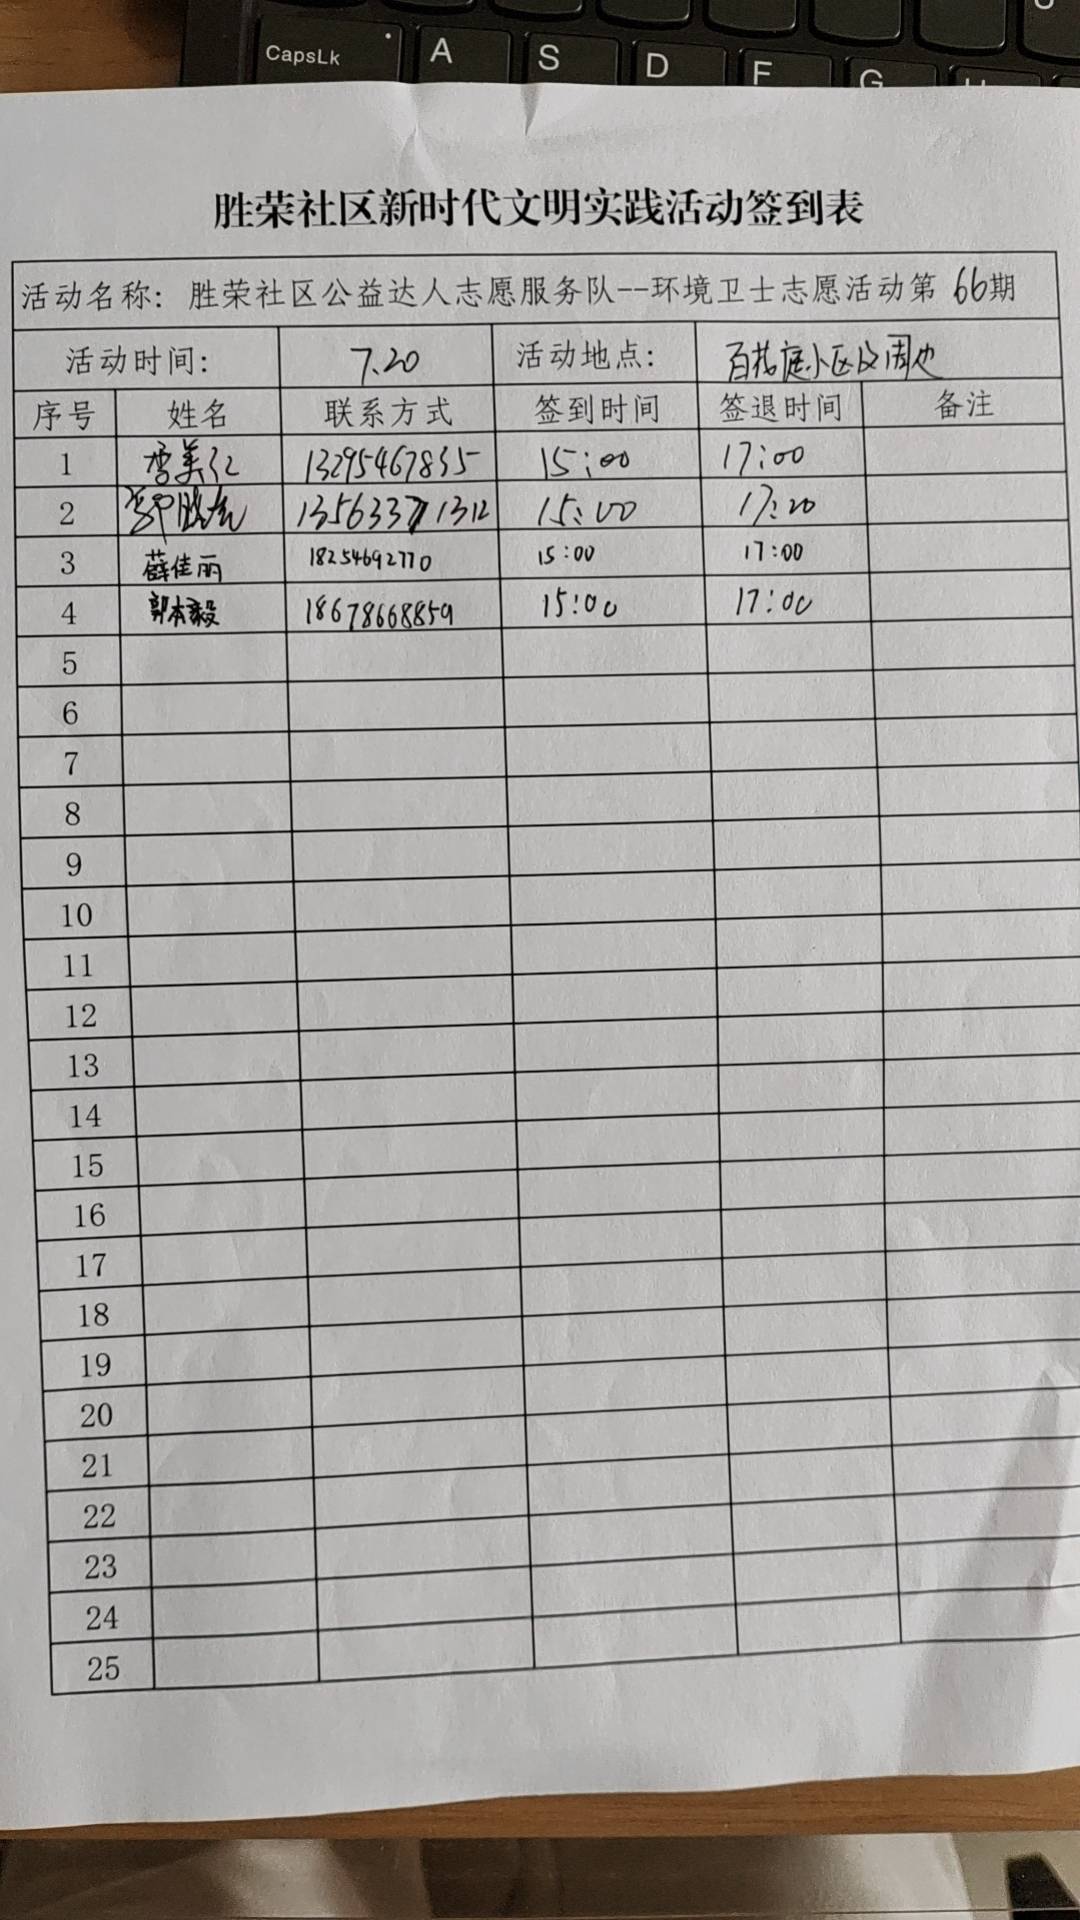 CapsLk A S D F G
胜荣社区新时代文明实践活动签到表
活动名称: 胜荣社区公益达人志愿服务队--环境卫士志愿活动第 66期
活动时间: 7.20 活动地点: 百花庭小区及周边
序号 姓名 联系方式 签到时间 签退时间 备注
1 李美红 13295467835 15:00 17:00
2 15:00 17:20
3 薛佳丽 18254692770 15:00 17:00
4 郭本毅 18678668859 15:00 17:00
5
6
7
8
9
10
11
12
13
14
15
16
17
18
19
20
21
22
23
24
25